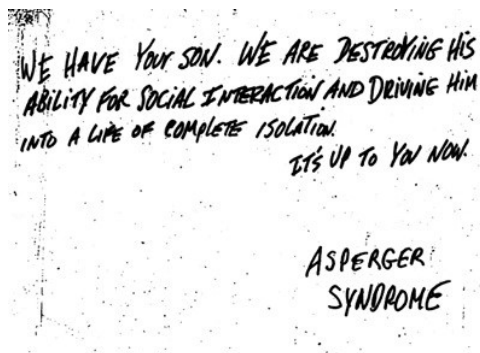 WE HAVE YOUR SON. WE ARE DESTROYING HIS
ABILITY FOR SOCIAL INTERACTION AND DRIVING HIM
INTO A LIFE OF COMPLETE ISOLATION.
IT'S UP TO YOU NOW.
ASPERGER
SYNDROME